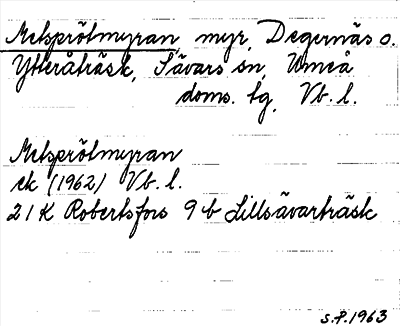 Metsprötmyran, myr, Degernäs o.
Ytteråträsk, Sävars sn, Umeå
doms. tg, Vb. l.
Metsprötmyran
ek (1962) Vb. l.
21K Robertsfors 9b Lillsävarträsk
S.P. 1963